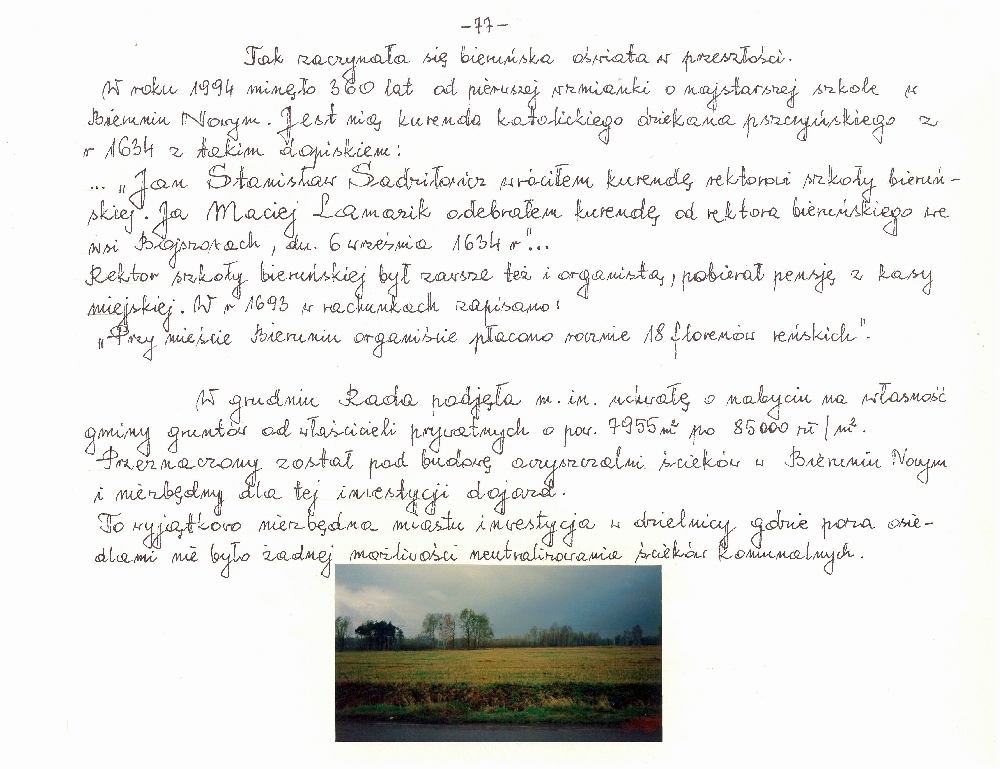 -77-
Tak zaczynała się bieruńska oświata w przeszłości.
W roku 1994 minęło 360 lat od pierwszej wzmianki o najstarszej szkole w
Bieruniu Nowym. Jest nią kurenda katolickiego dziekana pszczyńskiego z
r 1634 z takim dopiskiem:
... „Jan Stanisław Sadriłowicz wróciłem kurendę rektorowi szkoły bieruń-
skiej. Ja Maciej Lamazik odebrałem kurendę od rektora bieruńskiego we
wsi Bojszowach, dn. 6 września 1634 r"...
Rektor szkoły bieruńskiej był zawsze też i organistą, pobierał pensję z kasy
miejskiej. W r 1693 w rachunkach zapisano:
„Przy mieście Bieruniu organiście płacono rocznie 18 florenów reńskich".
W grudniu Rada podjęła m. in. uchwałę o nabyciu na własność
gminy gruntów od właścicieli prywatnych o pow. 7955 m² po 85000 zł/m².
Przeznaczony został pod budowę oczyszczalni ścieków w Bieruniu Nowym
i niezbędny dla tej inwestycji dojazd.
To wyjątkowo niezbędna miastu inwestycja w dzielnicy gdzie poza osie-
dlami nie było żadnej możliwości neutralizowania ścieków komunalnych.